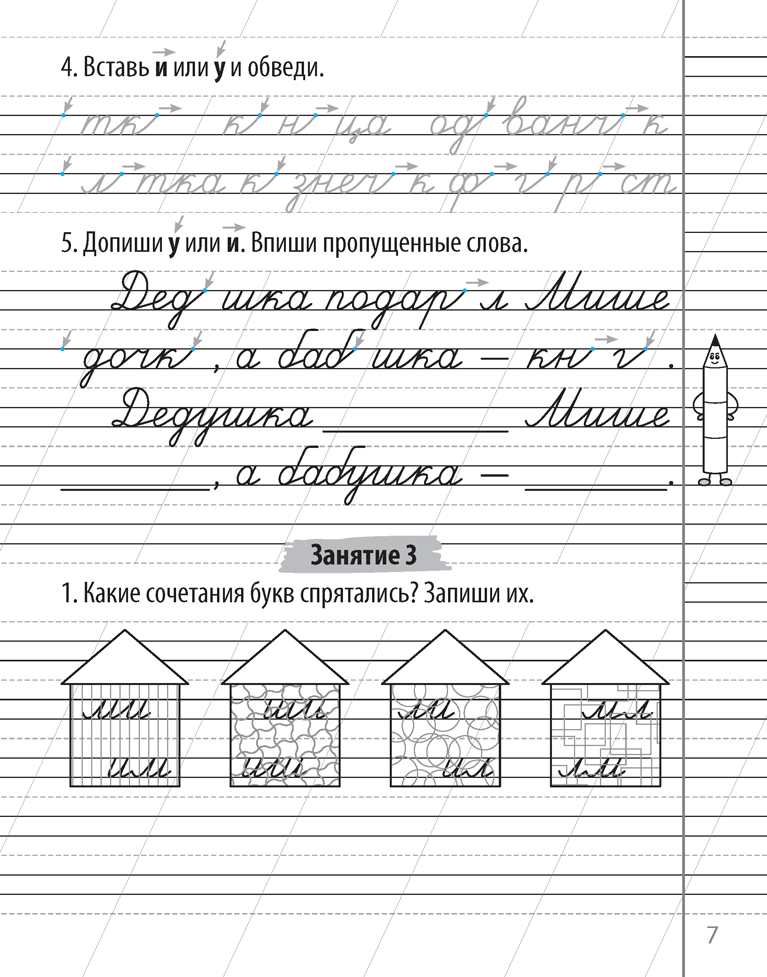 4. Вставь и или у и обведи.
тк к н ца од ванч к
л тка к знеч к ф г р ст
5. Допиши у или и. Впиши пропущенные слова.
Дед шка подар л Мише
дочк , а баб шка – кн г .
Дедушка ________ Мише
________, а бабушка – ________.
Занятие 3
1. Какие сочетания букв спрятались? Запиши их.
ми ши ли мл
им иш ил лм
7